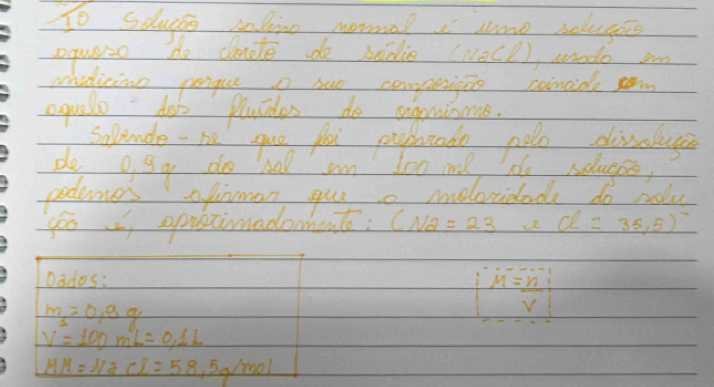 10 Solução salina normal é uma solução
aquosa de cloreto de sódio (NaCl), usada em
medicina porque a sua composição coincide com
aquela dos fluídos do organismo.
Sabendo-se que foi preparada pela dissolução
de 0,9g do sal em 100 ml de solução,
podemos afirmar que a molaridade da solu
ção é, aproximadamente: (Na = 23 e Cl = 35,5)
Dados:
M = n
V
m₁ = 0,9 g
V = 100 mL = 0,1 L
MM = NaCl = 58,5g/mol